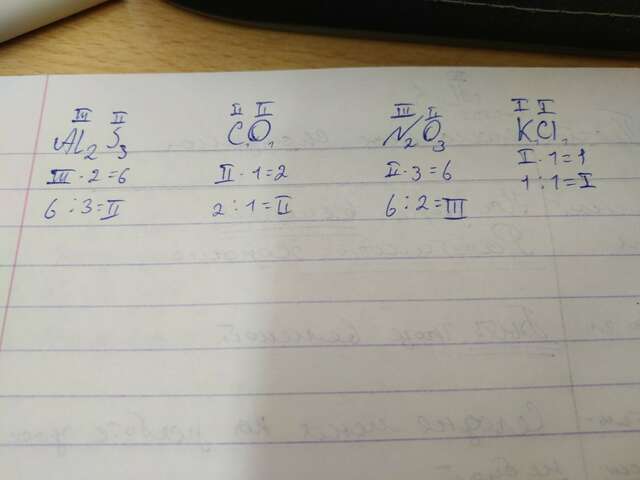 III II II II III II I I
Al2 S3 C1O1 N2O3 K1Cl1
III · 2 = 6 II · 1 = 2 II · 3 = 6 I · 1 = 1
6 : 3 = II 2 : 1 = II 6 : 2 = III 1 : 1 = I